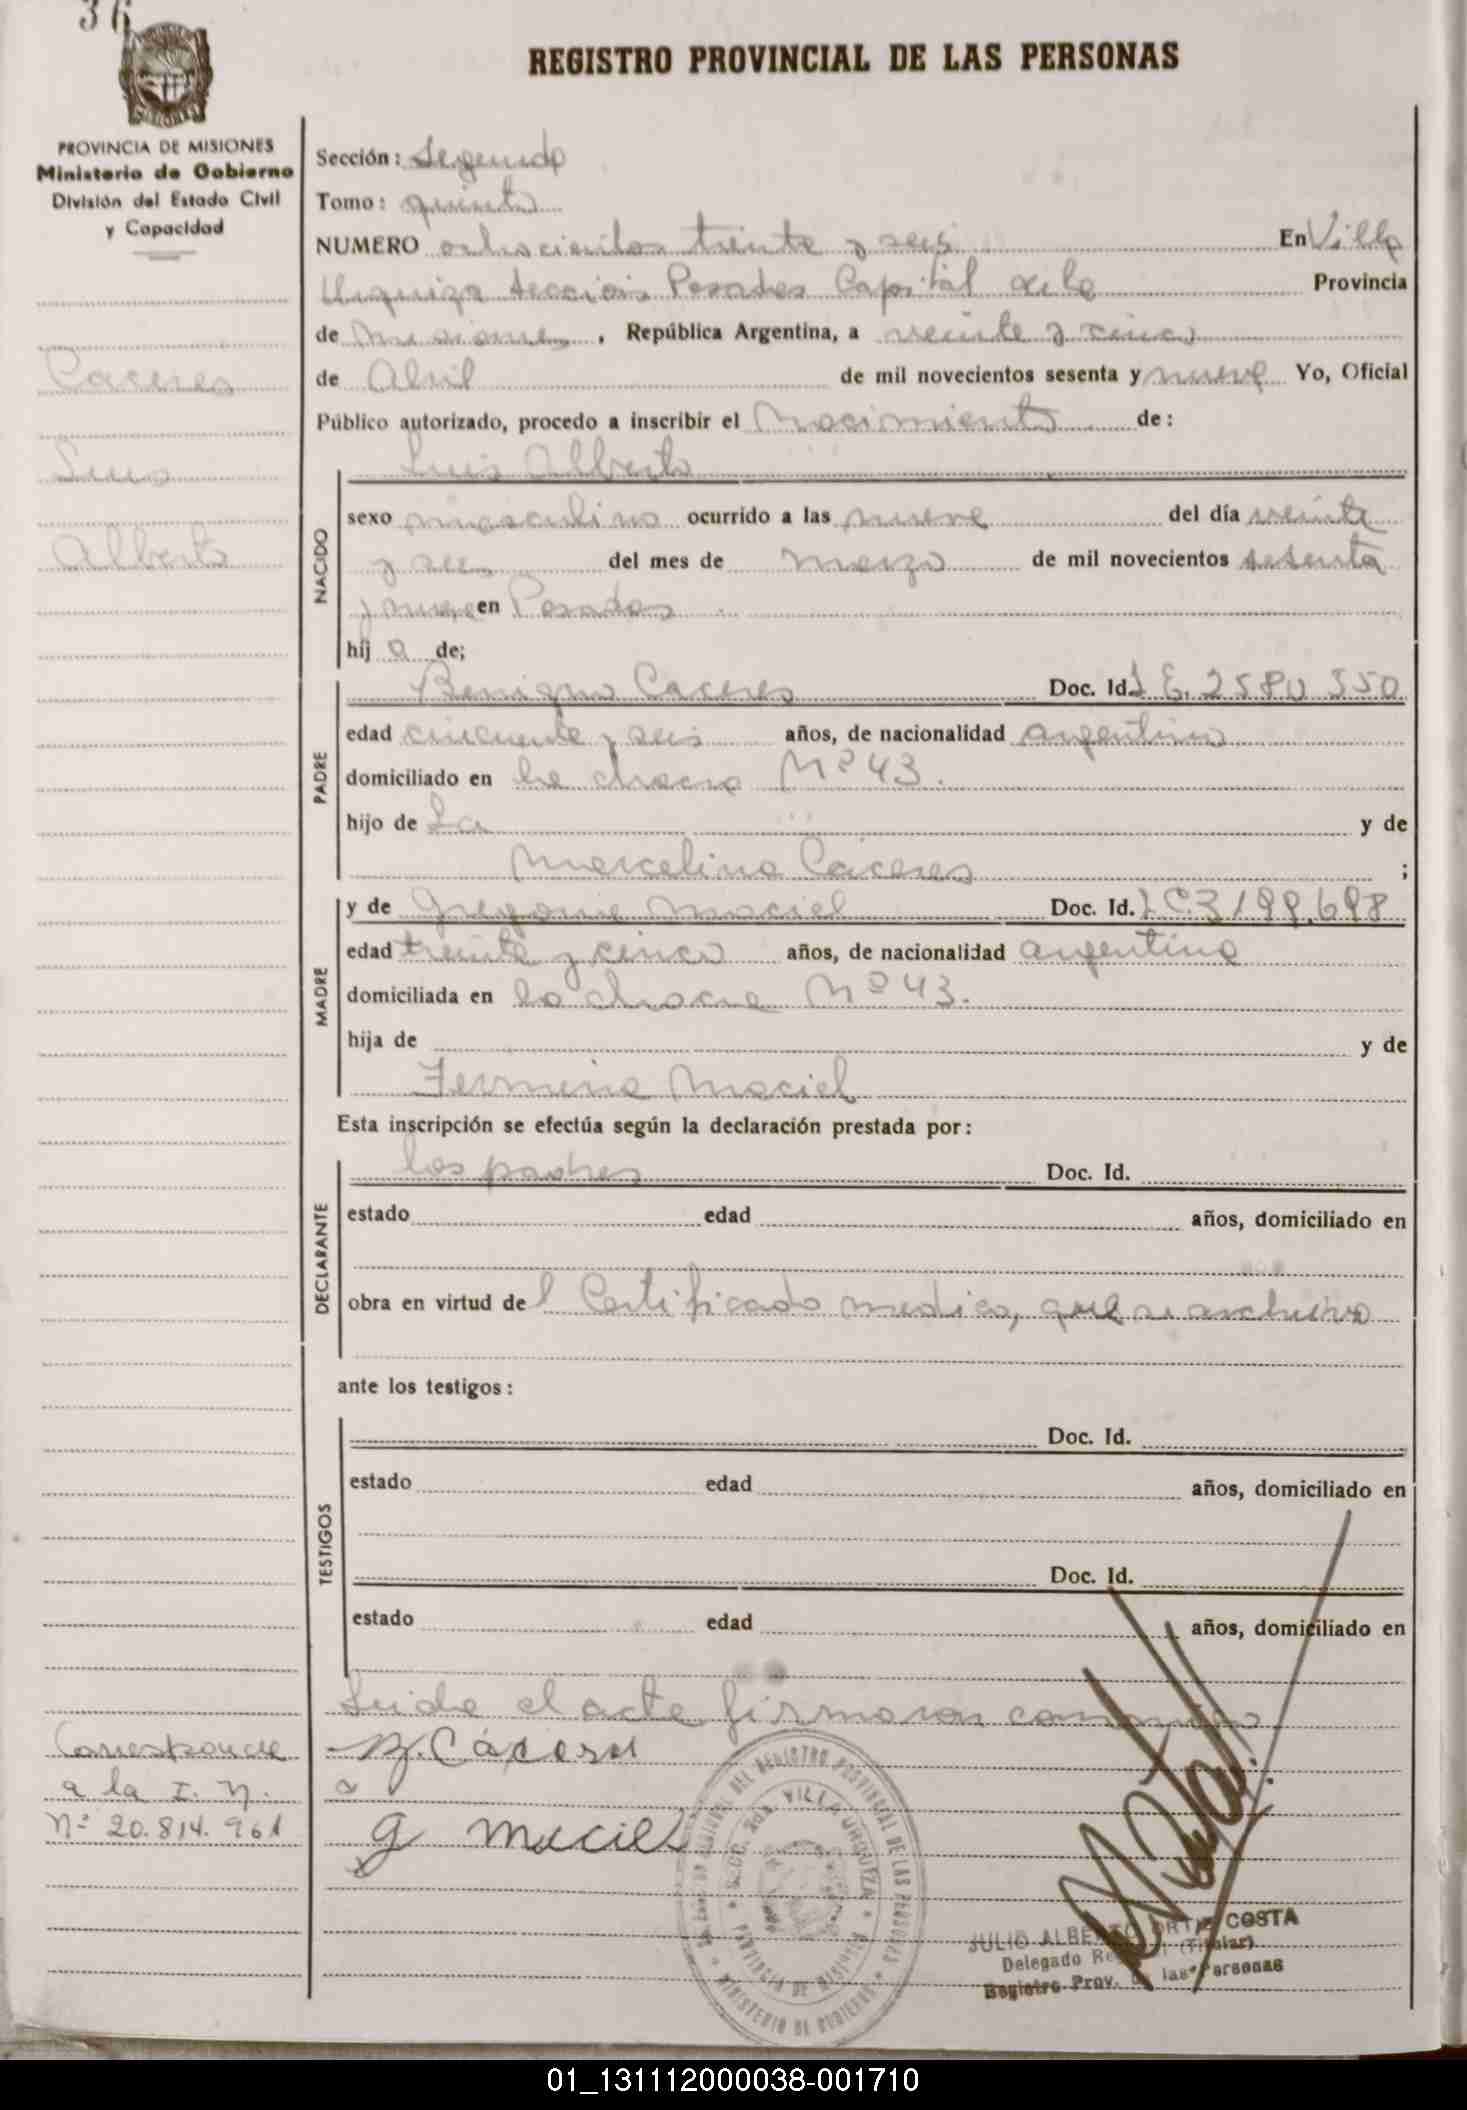 36
REGISTRO PROVINCIAL DE LAS PERSONAS
PROVINCIA DE MISIONES
Ministerio de Gobierno
División del Estado Civil
y Capacidad
Caceres
Luis
Alberto
Sección: Segunda
Tomo: quinto
NUMERO ochocientos treinta y seis En Villa
Urquiza Sección Posadas Capital de la Provincia
de Misiones, República Argentina, a veinte y cinco
de Abril de mil novecientos sesenta y nueve Yo, Oficial
Público autorizado, procedo a inscribir el Nacimiento de:
Luis Alberto
NACIDO
sexo masculino ocurrido a las nueve del día veinte
y seis del mes de marzo de mil novecientos sesenta
y nueve en Posadas
hij o de;
PADRE
Benigno Caceres Doc. Id. L E. 2580 550
edad cincuenta y seis años, de nacionalidad argentino
domiciliado en la chacra Nº 43.
hijo de y de
Marcelina Cáceres ;
MADRE
y de Gregoria Maciel Doc. Id. L C. 3199.698
edad treinta y cinco años, de nacionalidad argentina
domiciliada en la chacra Nº 43.
hija de y de
Fermina Maciel
Esta inscripción se efectúa según la declaración prestada por:
DECLARANTE
los padres Doc. Id.
estado edad años, domiciliado en
obra en virtud de l Certificado medico, que se archiva
ante los testigos:
TESTIGOS
Doc. Id.
estado edad años, domiciliado en
Doc. Id.
estado edad años, domiciliado en
Leida el acta firmaron conmigo
B. Cáceres
g maciel
Corresponde
a la I. N.
Nº 20.814.961
SECC. 2da. VILLA URQUIZA
PROVINCIA DE MISIONES
MINISTERIO DE GOBIERNO
REGISTRO PROVINCIAL DE LAS PERSONAS
JULIO ALBERTO ORTIZ COSTA
Delegado (Titular)
Registro Prov. de las Personas
01_131112000038-001710